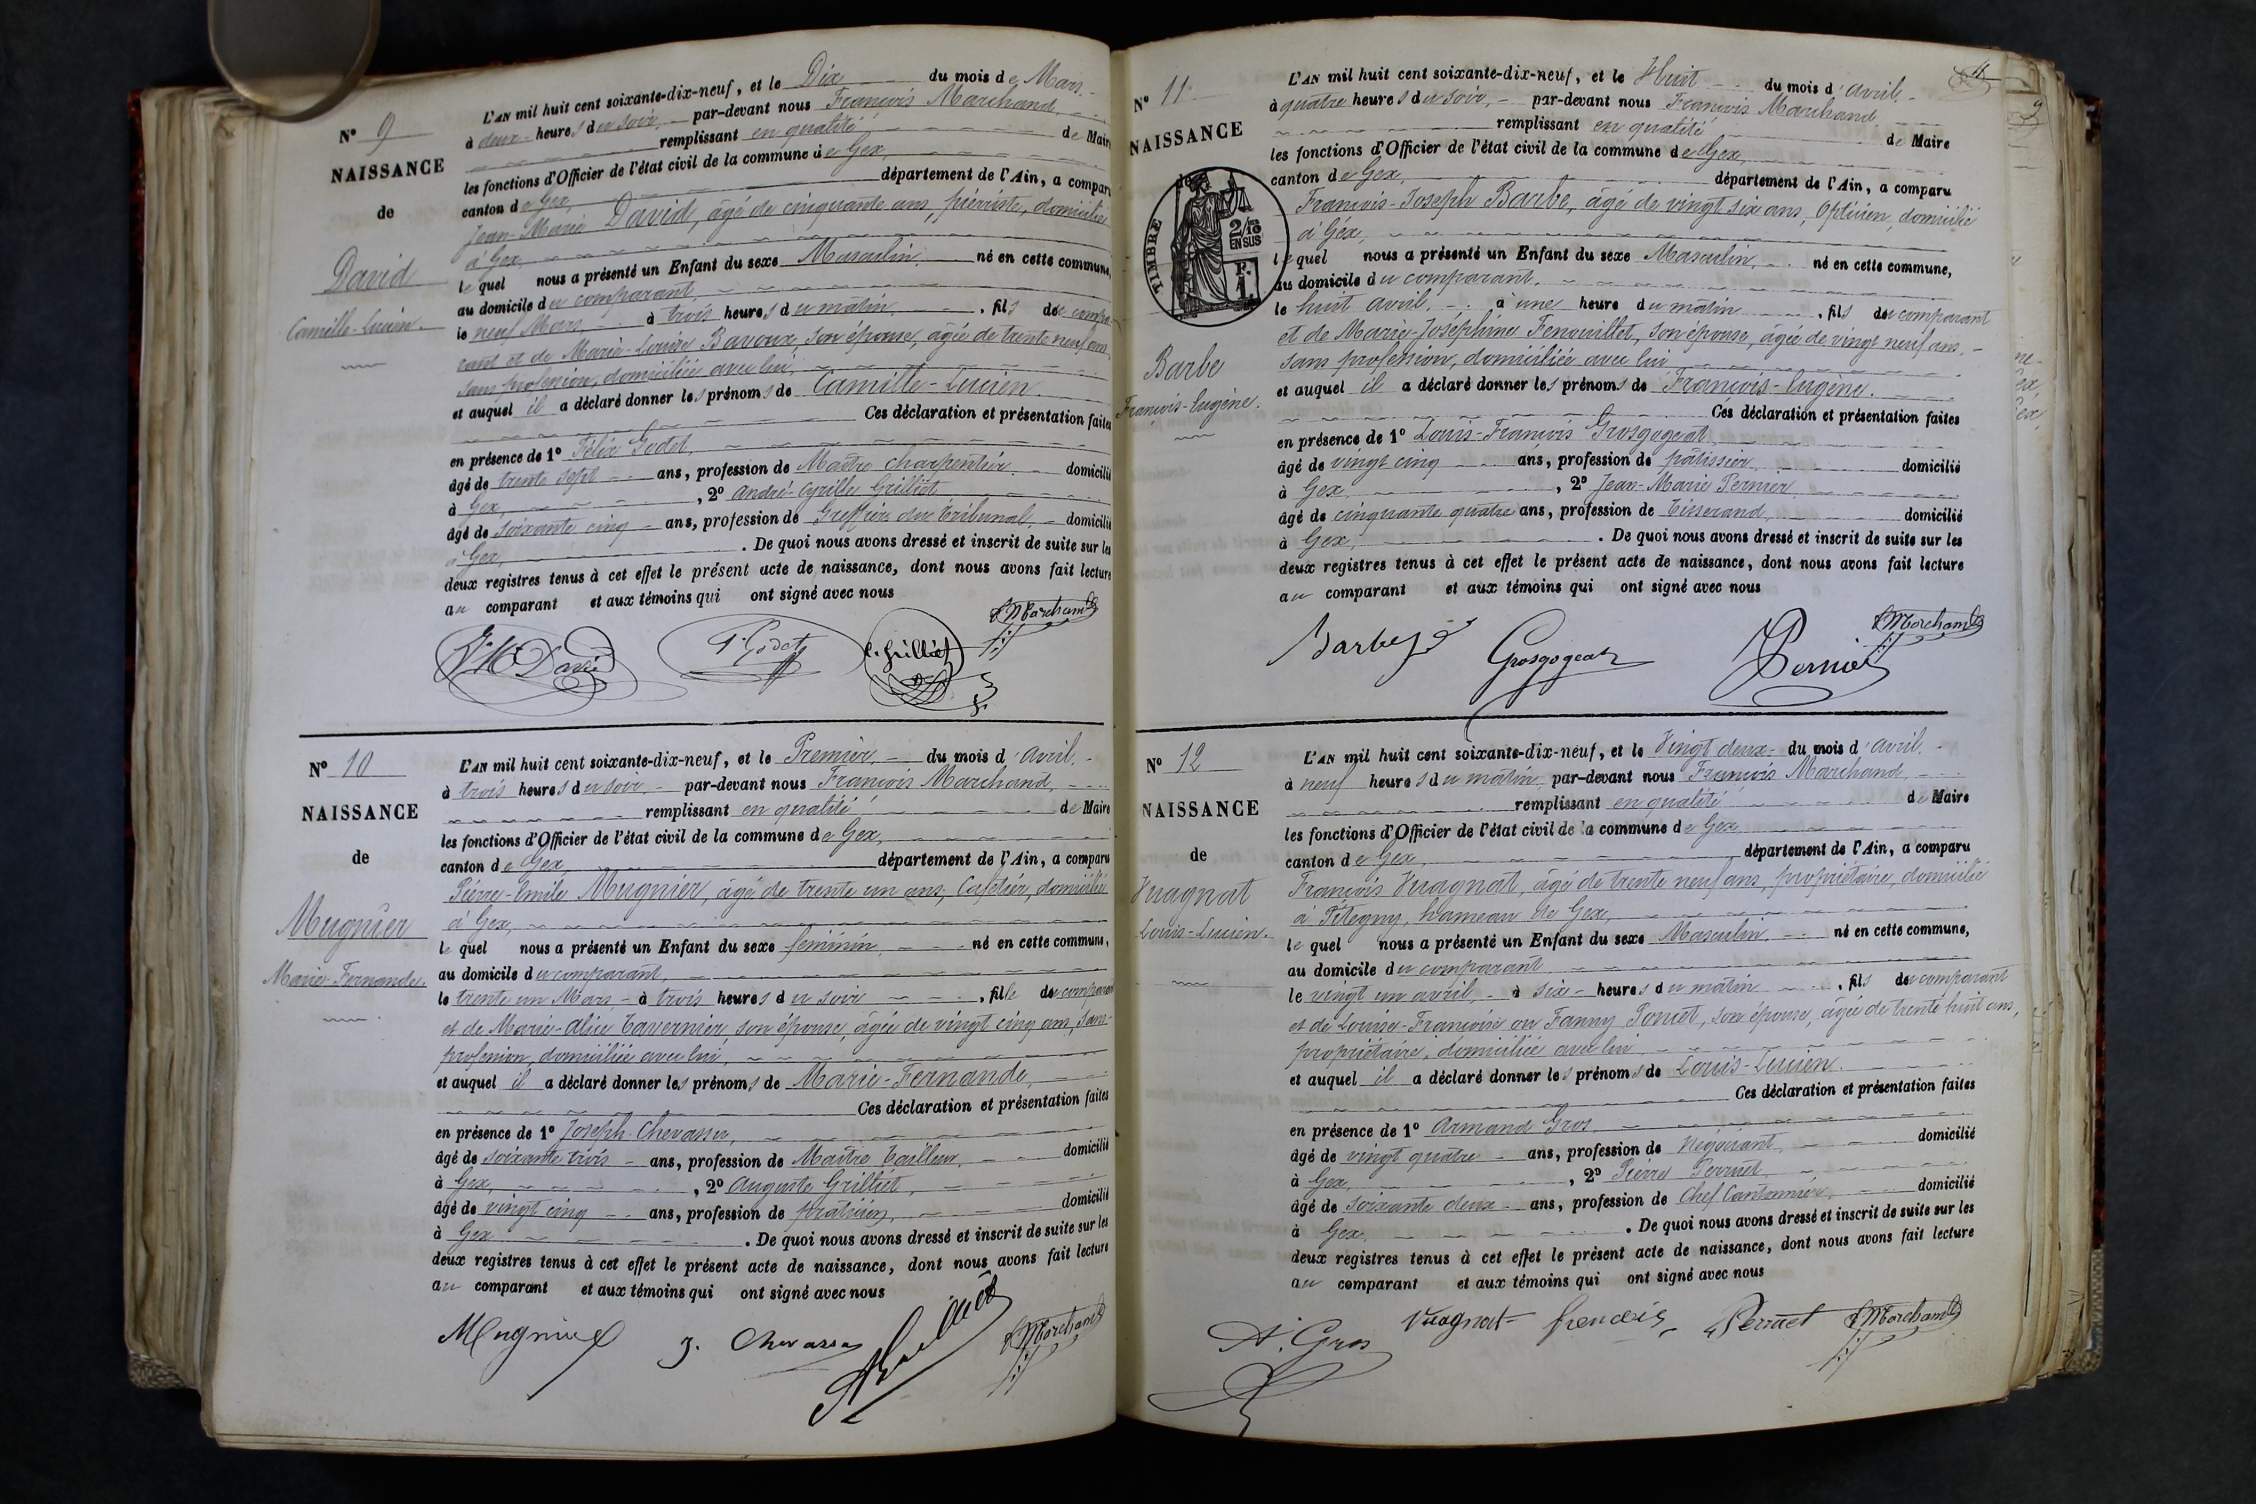 N° 9
NAISSANCE
de
David
Camille-Lucien.
L'AN mil huit cent soixante-dix-neuf, et le Dix du mois de Mars.
à deux heures du soir, par-devant nous François Marchand,
remplissant en qualité de Maire
les fonctions d'Officier de l'état civil de la commune de Gex,
canton de Gex, département de l'Ain, a comparu
Jean-Marie David, âgé de cinquante ans, pierriste, domicilié
à Gex,
lequel nous a présenté un Enfant du sexe Masculin, né en cette commune,
au domicile du comparant,
le neuf Mars, à trois heures du matin, fils du compa-
rant et de Marie-Louise Baroux, son épouse, âgée de trente neuf ans,
sans profession, domiciliée avec lui,
et auquel il a déclaré donner les prénoms de Camille-Lucien.
Ces déclaration et présentation faites
en présence de 1° Félix Godet,
âgé de trente sept ans, profession de Maître charpentier, domicilié
à Gex, , 2° André-Cyrille Grilliet
âgé de soixante cinq ans, profession de Greffier du Tribunal, domicilié
à Gex, . De quoi nous avons dressé et inscrit de suite sur les
deux registres tenus à cet effet le présent acte de naissance, dont nous avons fait lecture
au comparant et aux témoins qui ont signé avec nous
J. M. David F. Godet C. Grilliet F. Marchand
N° 10
NAISSANCE
de
Mugnier
Marie-Fernande.
L'AN mil huit cent soixante-dix-neuf, et le Premier du mois d'avril.
à trois heures du soir, par-devant nous François Marchand,
remplissant en qualité de Maire
les fonctions d'Officier de l'état civil de la commune de Gex,
canton de Gex, département de l'Ain, a comparu
Pierre-Emile Mugnier, âgé de trente un ans, Cafetier, domicilié
à Gex,
lequel nous a présenté un Enfant du sexe féminin, né en cette commune,
au domicile du comparant,
le trente un Mars, à trois heures du soir, fille du comparant
et de Marie-Alice Tavernier, son épouse, âgée de vingt cinq ans, sans
profession, domiciliée avec lui,
et auquel il a déclaré donner les prénoms de Marie-Fernande,
Ces déclaration et présentation faites
en présence de 1° Joseph Chevassu,
âgé de soixante trois ans, profession de Maître Tailleur, domicilié
à Gex, , 2° Auguste Grilliet,
âgé de vingt cinq ans, profession de praticien, domicilié
à Gex . De quoi nous avons dressé et inscrit de suite sur les
deux registres tenus à cet effet le présent acte de naissance, dont nous avons fait lecture
au comparant et aux témoins qui ont signé avec nous
Mugnier J. Chevassu A Grilliet F. Marchand
11
N° 11
NAISSANCE
TIMBRE
2/10
EN SUS
F.
1
Barbe
François-Eugène.
L'AN mil huit cent soixante-dix-neuf, et le Huit du mois d'avril,
à quatre heures du soir, par-devant nous François Marchand
remplissant en qualité de Maire
les fonctions d'Officier de l'état civil de la commune de Gex,
canton de Gex, département de l'Ain, a comparu
François-Joseph Barbe, âgé de vingt six ans, Opticien, domicilié
à Gex,
lequel nous a présenté un Enfant du sexe Masculin, né en cette commune,
au domicile du comparant,
le huit avril, à une heure du matin, fils du comparant
et de Marie-Joséphine Fenouillet, son épouse, âgée de vingt neuf ans,
sans profession, domiciliée avec lui
et auquel il a déclaré donner les prénoms de François-Eugène.
Ces déclaration et présentation faites
en présence de 1° Louis-François Grosgogeat,
âgé de vingt cinq ans, profession de pâtissier, domicilié
à Gex, , 2° Jean-Marie Pernier,
âgé de cinquante quatre ans, profession de Tisserand, domicilié
à Gex, . De quoi nous avons dressé et inscrit de suite sur les
deux registres tenus à cet effet le présent acte de naissance, dont nous avons fait lecture
au comparant et aux témoins qui ont signé avec nous
Barbe Grosgogeat Pernier F. Marchand
N° 12
NAISSANCE
de
Vuagnat
Louis-Lucien.
L'AN mil huit cent soixante-dix-neuf, et le Vingt deux du mois d'avril.
à neuf heures du matin, par-devant nous François Marchand,
remplissant en qualité de Maire
les fonctions d'Officier de l'état civil de la commune de Gex
canton de Gex, département de l'Ain, a comparu
François Vuagnat, âgé de trente neuf ans, propriétaire, domicilié
à Pitegny, hameau de Gex,
lequel nous a présenté un Enfant du sexe Masculin, né en cette commune,
au domicile du comparant
le vingt un avril, à six heures du matin, fils du comparant
et de Louise-Françoise ou Fanny Poncet, son épouse, âgée de trente huit ans,
propriétaire, domiciliée avec lui
et auquel il a déclaré donner les prénoms de Louis-Lucien.
Ces déclaration et présentation faites
en présence de 1° Armand Gros,
âgé de vingt quatre ans, profession de Négociant, domicilié
à Gex, , 2° Pierre Perruet,
âgé de soixante deux ans, profession de Chef Cantonnier, domicilié
à Gex, . De quoi nous avons dressé et inscrit de suite sur les
deux registres tenus à cet effet le présent acte de naissance, dont nous avons fait lecture
au comparant et aux témoins qui ont signé avec nous
A. Gros Vuagnat francois Perruet F. Marchand